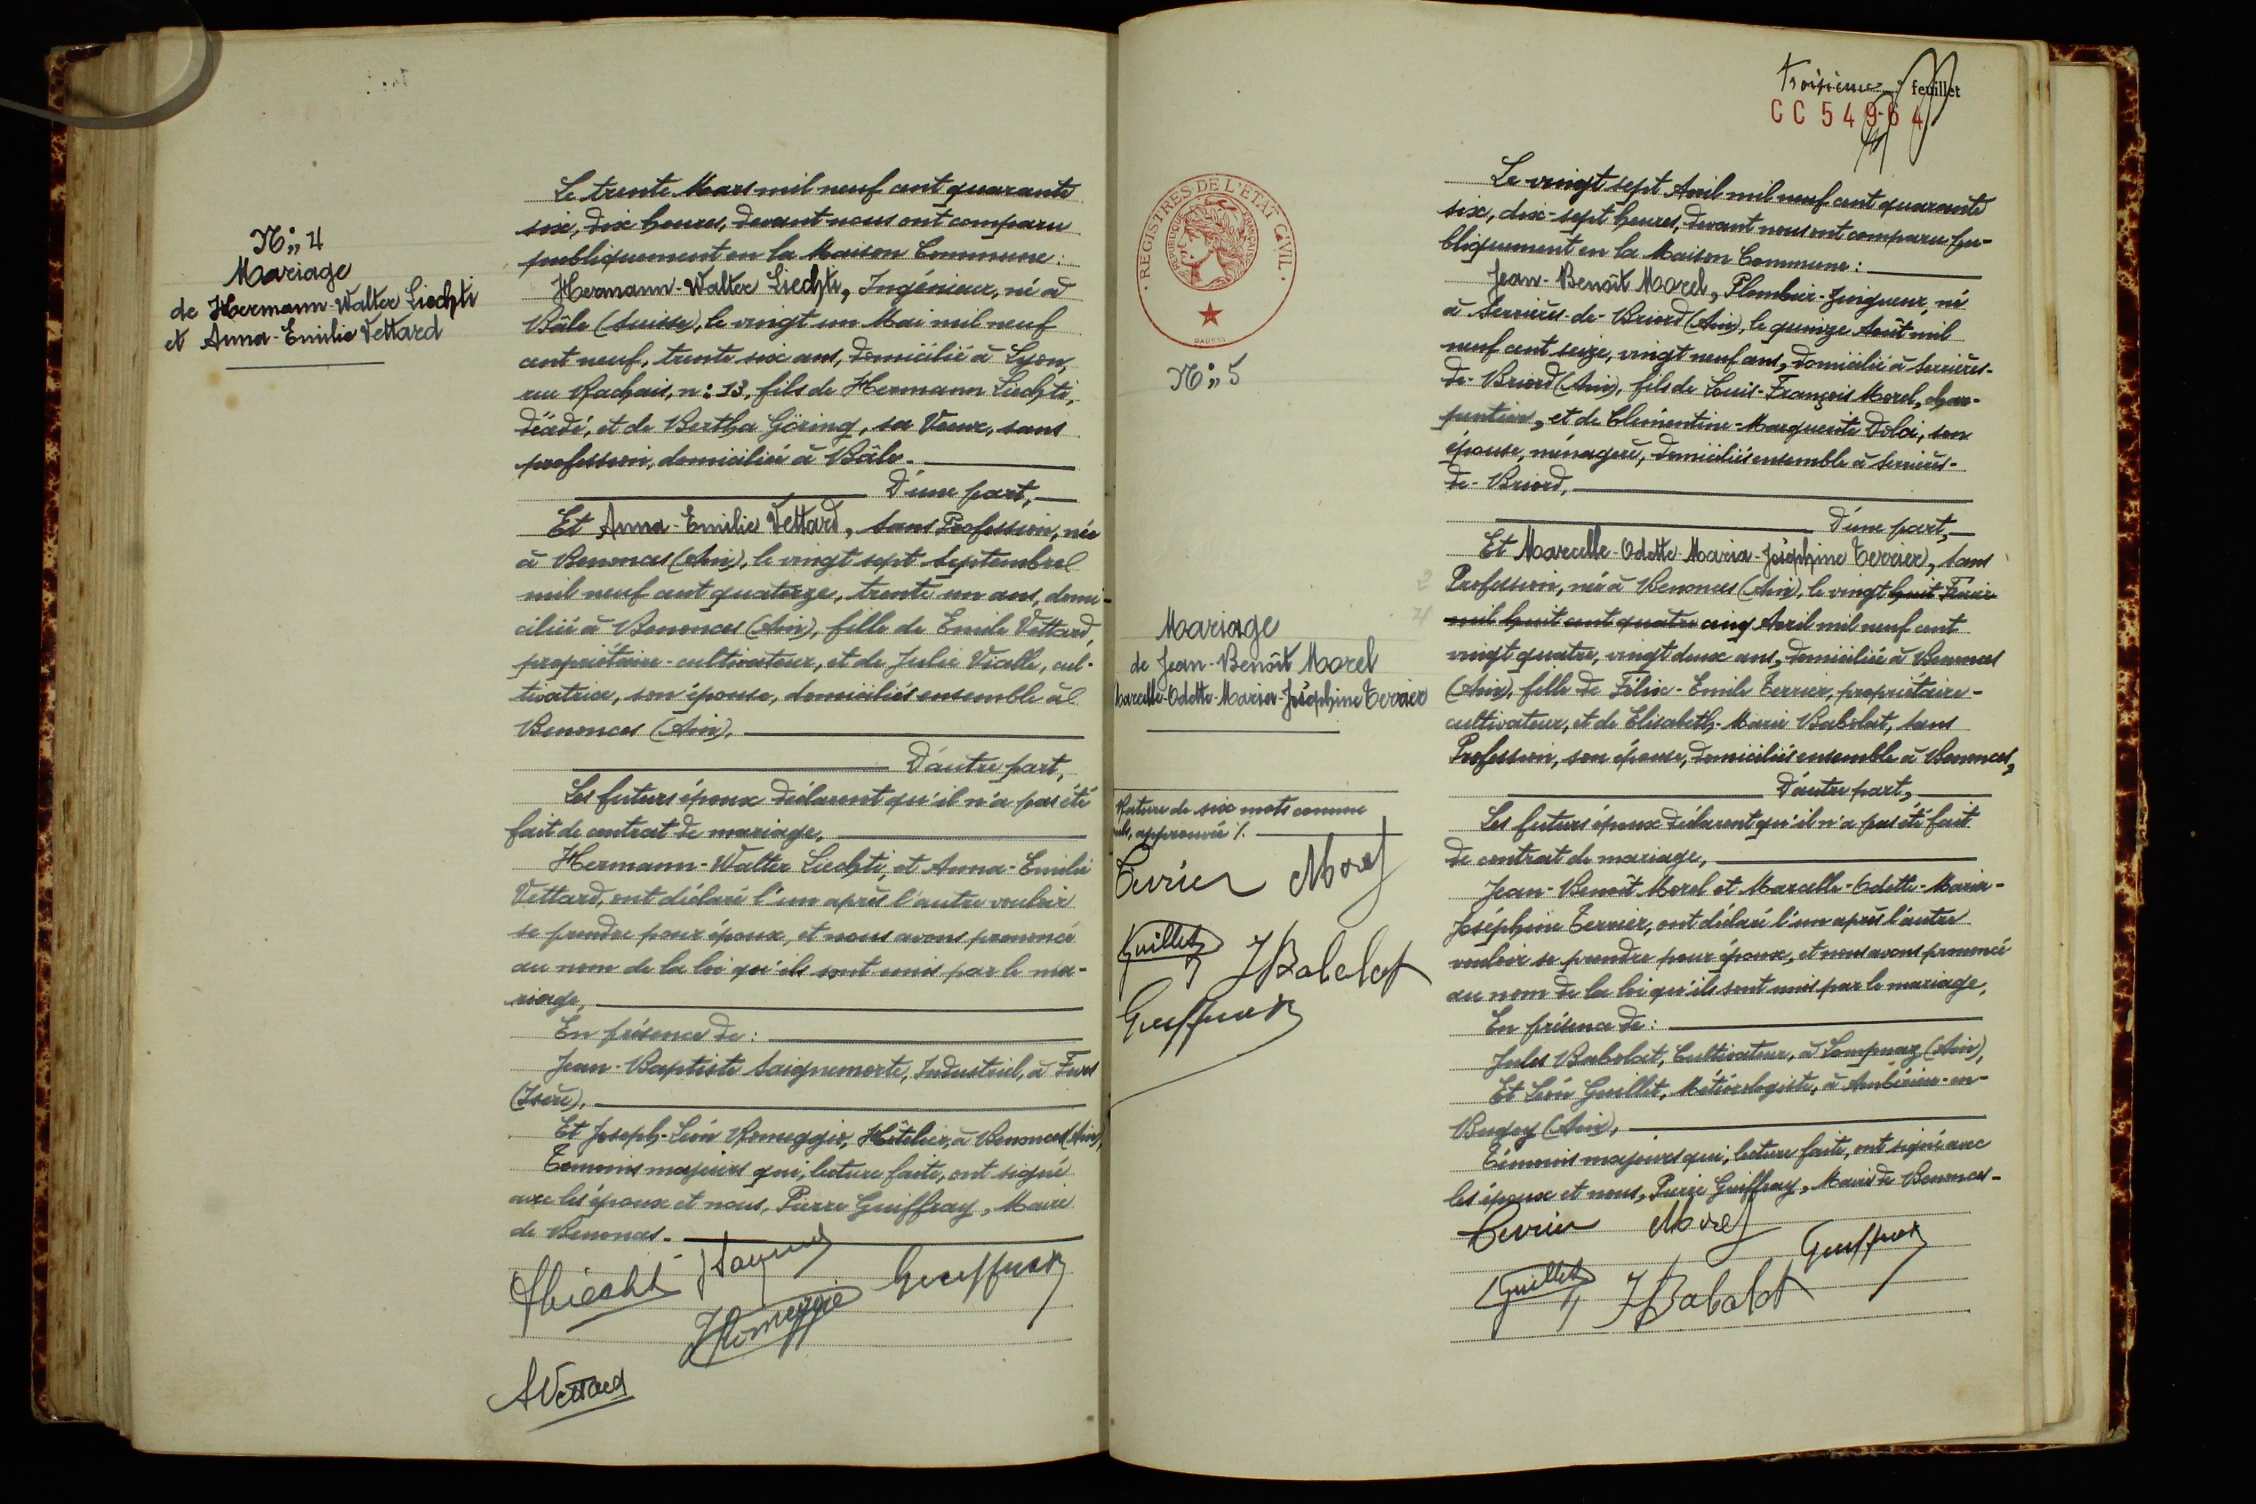 N° 4
Mariage
de Hermann-Walter Liechti
et Anna-Emilie Vettard
Le trente Mars mil neuf cent quarante
six, dix heures, devant nous ont comparu
publiquement en la Maison Commune :
Hermann-Walter Liechti, Ingénieur, né à
Bâle (Suisse), le vingt un Mai mil neuf
cent neuf, trente six ans, domicilié à Lyon,
rue Rachais, n: 13, fils de Hermann Liechti,
décédé, et de Bertha Göring, sa Veuve, sans
profession, domiciliée à Bâle.
D'une part,
Et Anna-Emilie Vettard, sans Profession, née
à Benonces (Ain), le vingt sept Septembre
mil neuf cent quatorze, trente un ans, domi-
ciliée à Benonces (Ain), fille de Emile Vettard,
propriétaire-cultivateur, et de Julie Vialle, cul-
tivatrice, son épouse, domiciliés ensemble à
Benonces (Ain),
D'autre part,
Les futurs époux déclarent qu'il n'a pas été
fait de contrat de mariage,
Hermann-Walter Liechti, et Anna-Emilie
Vettard, ont déclaré l'un après l'autre vouloir
se prendre pour époux, et nous avons prononcé
au nom de la loi qu'ils sont unis par le ma-
riage,
En présence de :
Jean-Baptiste Saignemorte, Industriel, à Fures
(Isère),
Et Joseph-Léon Romeggio, Hôtelier, à Benonces (Ain),
Témoins majeurs qui, lecture faite, ont signé
avec les époux et nous, Pierre Guiffray, Maire
de Benonces.
Liechti
JRomeggio
Guiffray
AVettard
Troisième feuillet
CC 54964
REGISTRES DE L'ETAT CIVIL
REPUBLIQUE FRANCAISE
N° 5
Mariage
de Jean-Benoît Morel
Marcelle-Odette-Maria-Joséphine Terrier
Rature de six mots comme
nuls, approuvée /.
Terrier Morel
Guillet JBabolat
Guiffray
Le vingt sept Avril mil neuf cent quarante
six, dix-sept heures, devant nous ont comparu pu-
bliquement en la Maison Commune :
Jean-Benoît Morel, Plombier-Zingueur, né
à Serrières-de-Briord (Ain), le quinze Août mil
neuf cent seize, vingt neuf ans, domicilié à Serrières-
de-Briord (Ain), fils de Louis-François Morel, char-
pentier, et de Clémentine-Marguerite Doloi, son
épouse, ménagère, domiciliés ensemble à Serrières-
de-Briord,
D'une part,
Et Marcelle-Odette-Maria-Joséphine Terrier, sans
Profession, née à Benonces (Ain), le vingt huit Février
mil huit cent quatre cinq Avril mil neuf cent
vingt quatre, vingt deux ans, domiciliée à Benonces
(Ain), fille de Félix-Emile Terrier, propriétaire-
cultivateur, et de Elisabeth-Marie Babolat, sans
Profession, son épouse, domiciliés ensemble à Benonces,
D'autre part,
Les futurs époux déclarent qu'il n'a pas été fait
de contrat de mariage,
Jean-Benoît Morel et Marcelle-Odette-Maria-
Joséphine Terrier, ont déclaré l'un après l'autre
vouloir se prendre pour époux, et nous avons prononcé
au nom de la loi qu'ils sont unis par le mariage,
En présence de :
Jules Babolat, Cultivateur, à Lompnaz (Ain),
Et Léon Guillet, Météorologiste, à Ambérieu-en-
Bugey (Ain),
Témoins majeurs qui, lecture faite, ont signé avec
les époux et nous, Pierre Guiffray, Maire de Benonces-
Terrier Morel Guiffray
Guillet JBabolat